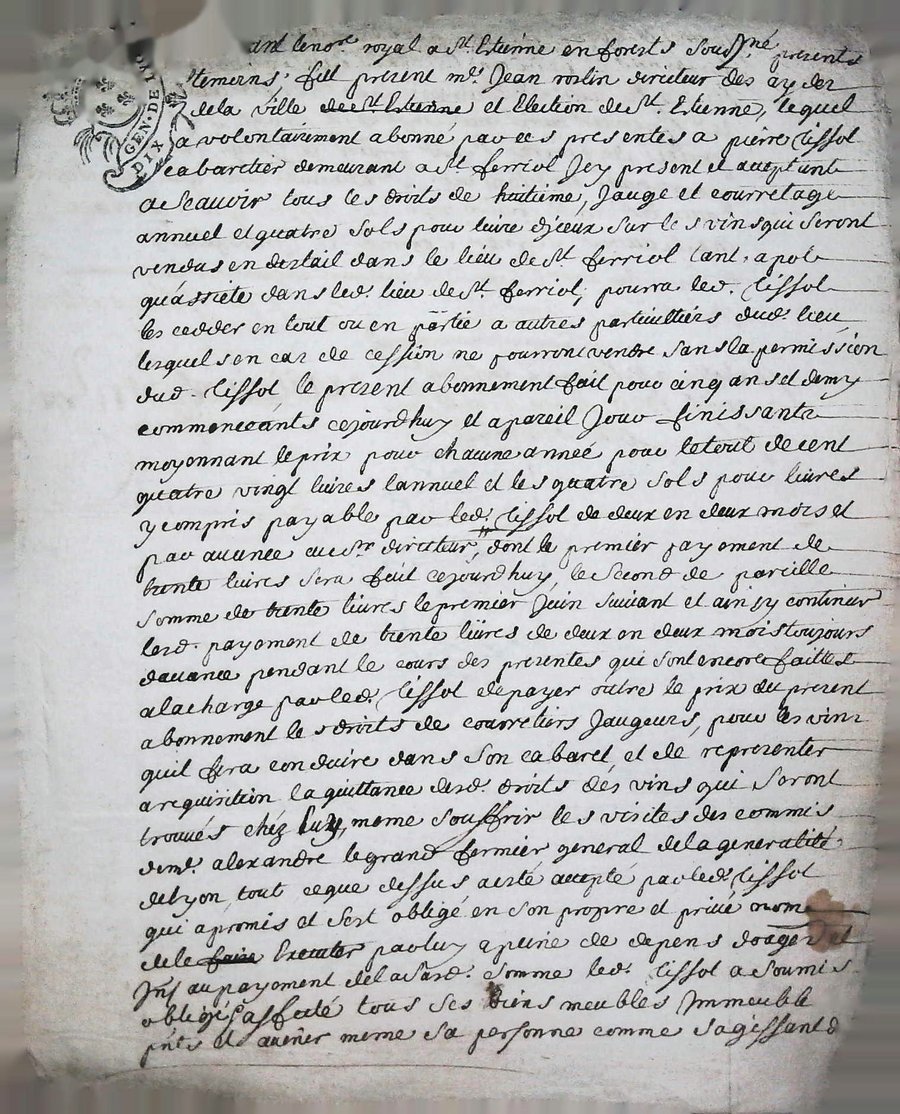 GEN · DE
DIX
ant le nore royal a St. Etienne en forests Soussigné presents
temoins, fût present mr. Jean rostin directeur des aydes
de la ville de St. Etienne et Election de St. Etienne, lequel
a volontairement abonné par ces presentes a pierre tissot
cabaretier demeurant a St. ferriol Jcy present et acceptant
a Scauoir tous les droits de huitieme, Jauge et courretage
annuel et quatre Sols pour liure d'jceux Sur les vins qui Seront
vendus en destail dans le lieu de St. ferriol tant a pot
qu'assiete dans led. lieu de St. ferriol, pourra led. tissot
les cedder en tout ou en partie a autres particulliers dud. lieu
lesquels en cas de cession ne pourront vendre Sans la permission
dud. tissot le present abonnement fait pour cinq ans et demy
commenceants cejourdhuy et a pareil Jour finissants
moyennant le prix pour chacune anneé pour le tout de cent
quatre vingt liures lannuel et les quatre Sols pour liures
y compris payable par led. tissot de deux en deux mois et
par auance aud. Sr. directeur, dont le premier payement de
trente liures Sera fait cejourdhuy, le Second de pareille
Somme de trente liures le premier Juin Suivant et ainsy continuer
lesd. payement de trente liures de deux en deux mois toujours
dauance pendant le cours des presentes qui sont encore faittes
a la charge par led. tissot de payer outre le prix du present
abonnement les droits de courretiers Jaugeurs, pour les vins
quil fera conduire dans Son cabaret, et de representer
a requisition la quittance desd. droits des vins qui Seront
trouués chez luy, meme Souffrir les visites des commis
de mr. alexandre legrand fermier general de la generalité
de Lyon, tout ce que dessus a esté accepté par led. tissot
qui a promis et Sest obligé en Son propre et priué nom
de le faire Executer par luy a peine de depens domages et
Jnts au payement de lasusd. Somme led. tissot a Soumis
obligé affecté tous Ses biens meubles Jmmeuble
pnts et auenir meme Sa personne comme Sagissant d